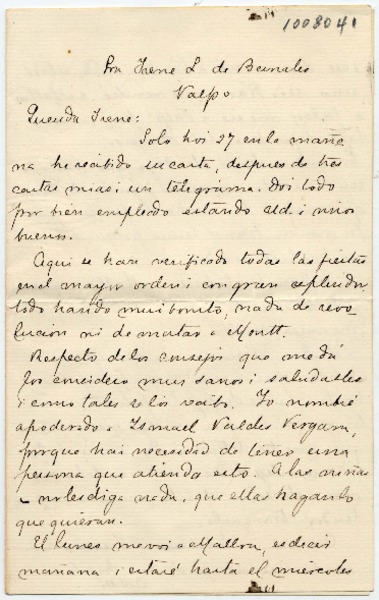 1008041
Sra Irene L de Bernales
Valpo
Querida Irene:
Solo hoi 27 en la maña
na he recibido su carta, despues de tres
cartas mias i un telegrama. Doi todo
por bien empleado estando Ud. i niños
buenos.
Aqui se han verificado todas las fiestas
en el mayor orden i con gran esplendor
todo ha sido mui bonito, nada de revo
lucion ni de matar a Montt.
Respecto de los consejos que me dá
los considero mui sanos i saludables
i como tales se los recibo. Yo nombré
apoderado a Ismael Valdes Vergara,
porque hai necesidad de tener una
persona que atienda esto. A las niñas
no les diga nada, que ellas hagan lo
que quieran.
El lunes me voi a Malloa, es decir
mañana i estaré hasta el miércoles